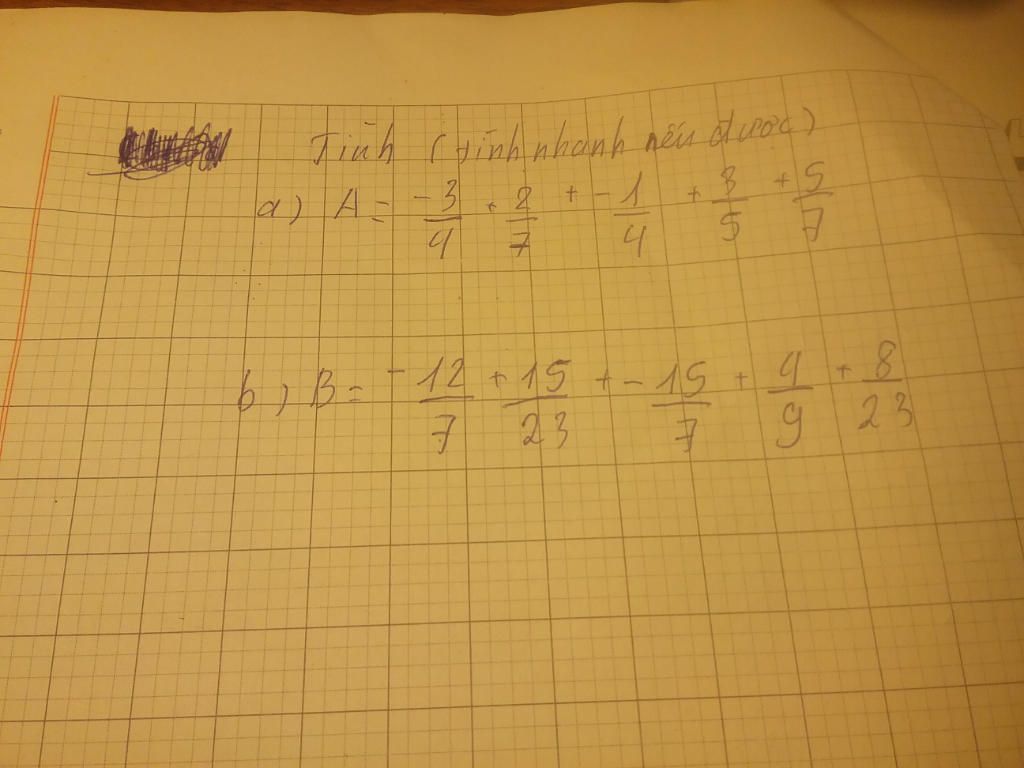 Tính (tính nhanh nếu được)
a) A = -3/4 + 2/7 + -1/4 + 3/5 + 5/7
b) B = -12/7 + 15/23 + -15/7 + 4/9 + 8/23